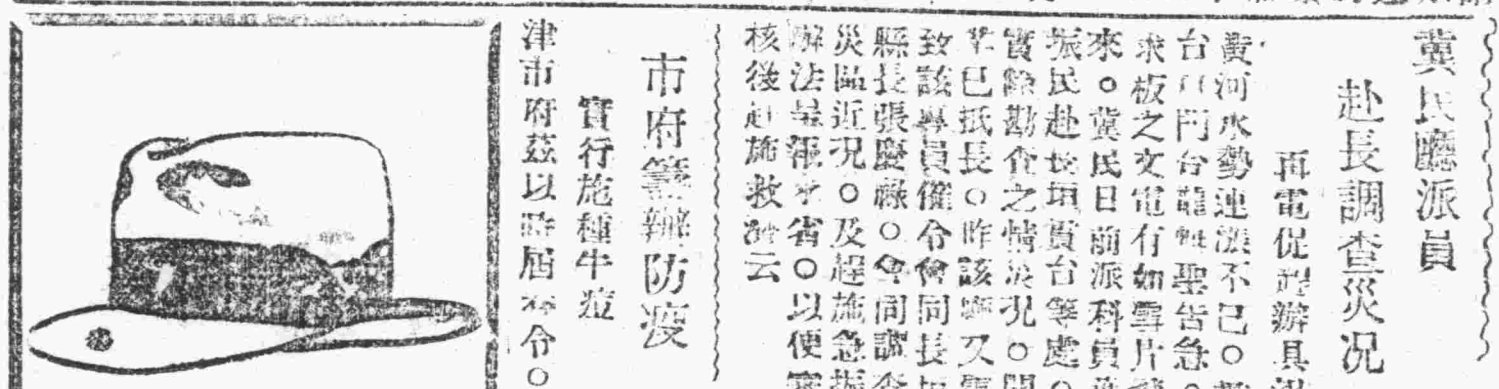 冀民廳派員
赴長調查災況
再電促程辦具
黃河水勢連漲不已。
台口門台龍 聖告急。
求板之文電有如雪片
來。冀民日前派科員
振民赴長垣貫台等處。
實際勘查之情況。
業已抵長。昨該廳又電
致該專員僅令會同長
縣長張慶祿。會同調查
災區近況。及趕施急振
辦法呈報來省。以便
核後赴施救濟云
市府籌辦防疫
實行施種牛痘
津市府茲以時屆春令。